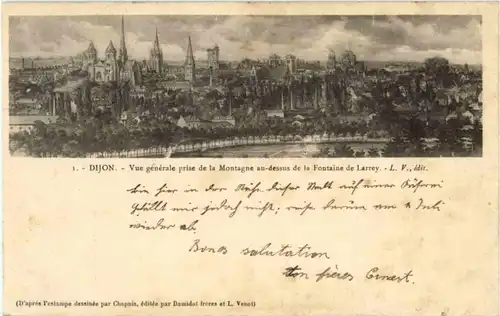 1. - DIJON. - Vue générale prise de la Montagne au-dessus de la Fontaine de Larrey. - L. V., édit.
Bin hier in der Nähe dieser Stadt auf einer Käserei
gfällt mir jedoch nicht, reise darum am Juli
wieder ab.
Bonds salutation
ton frères Ernest.
(D'après l'estampe dessinée par Chapuis, éditée par Damidot frères et L. Venot)